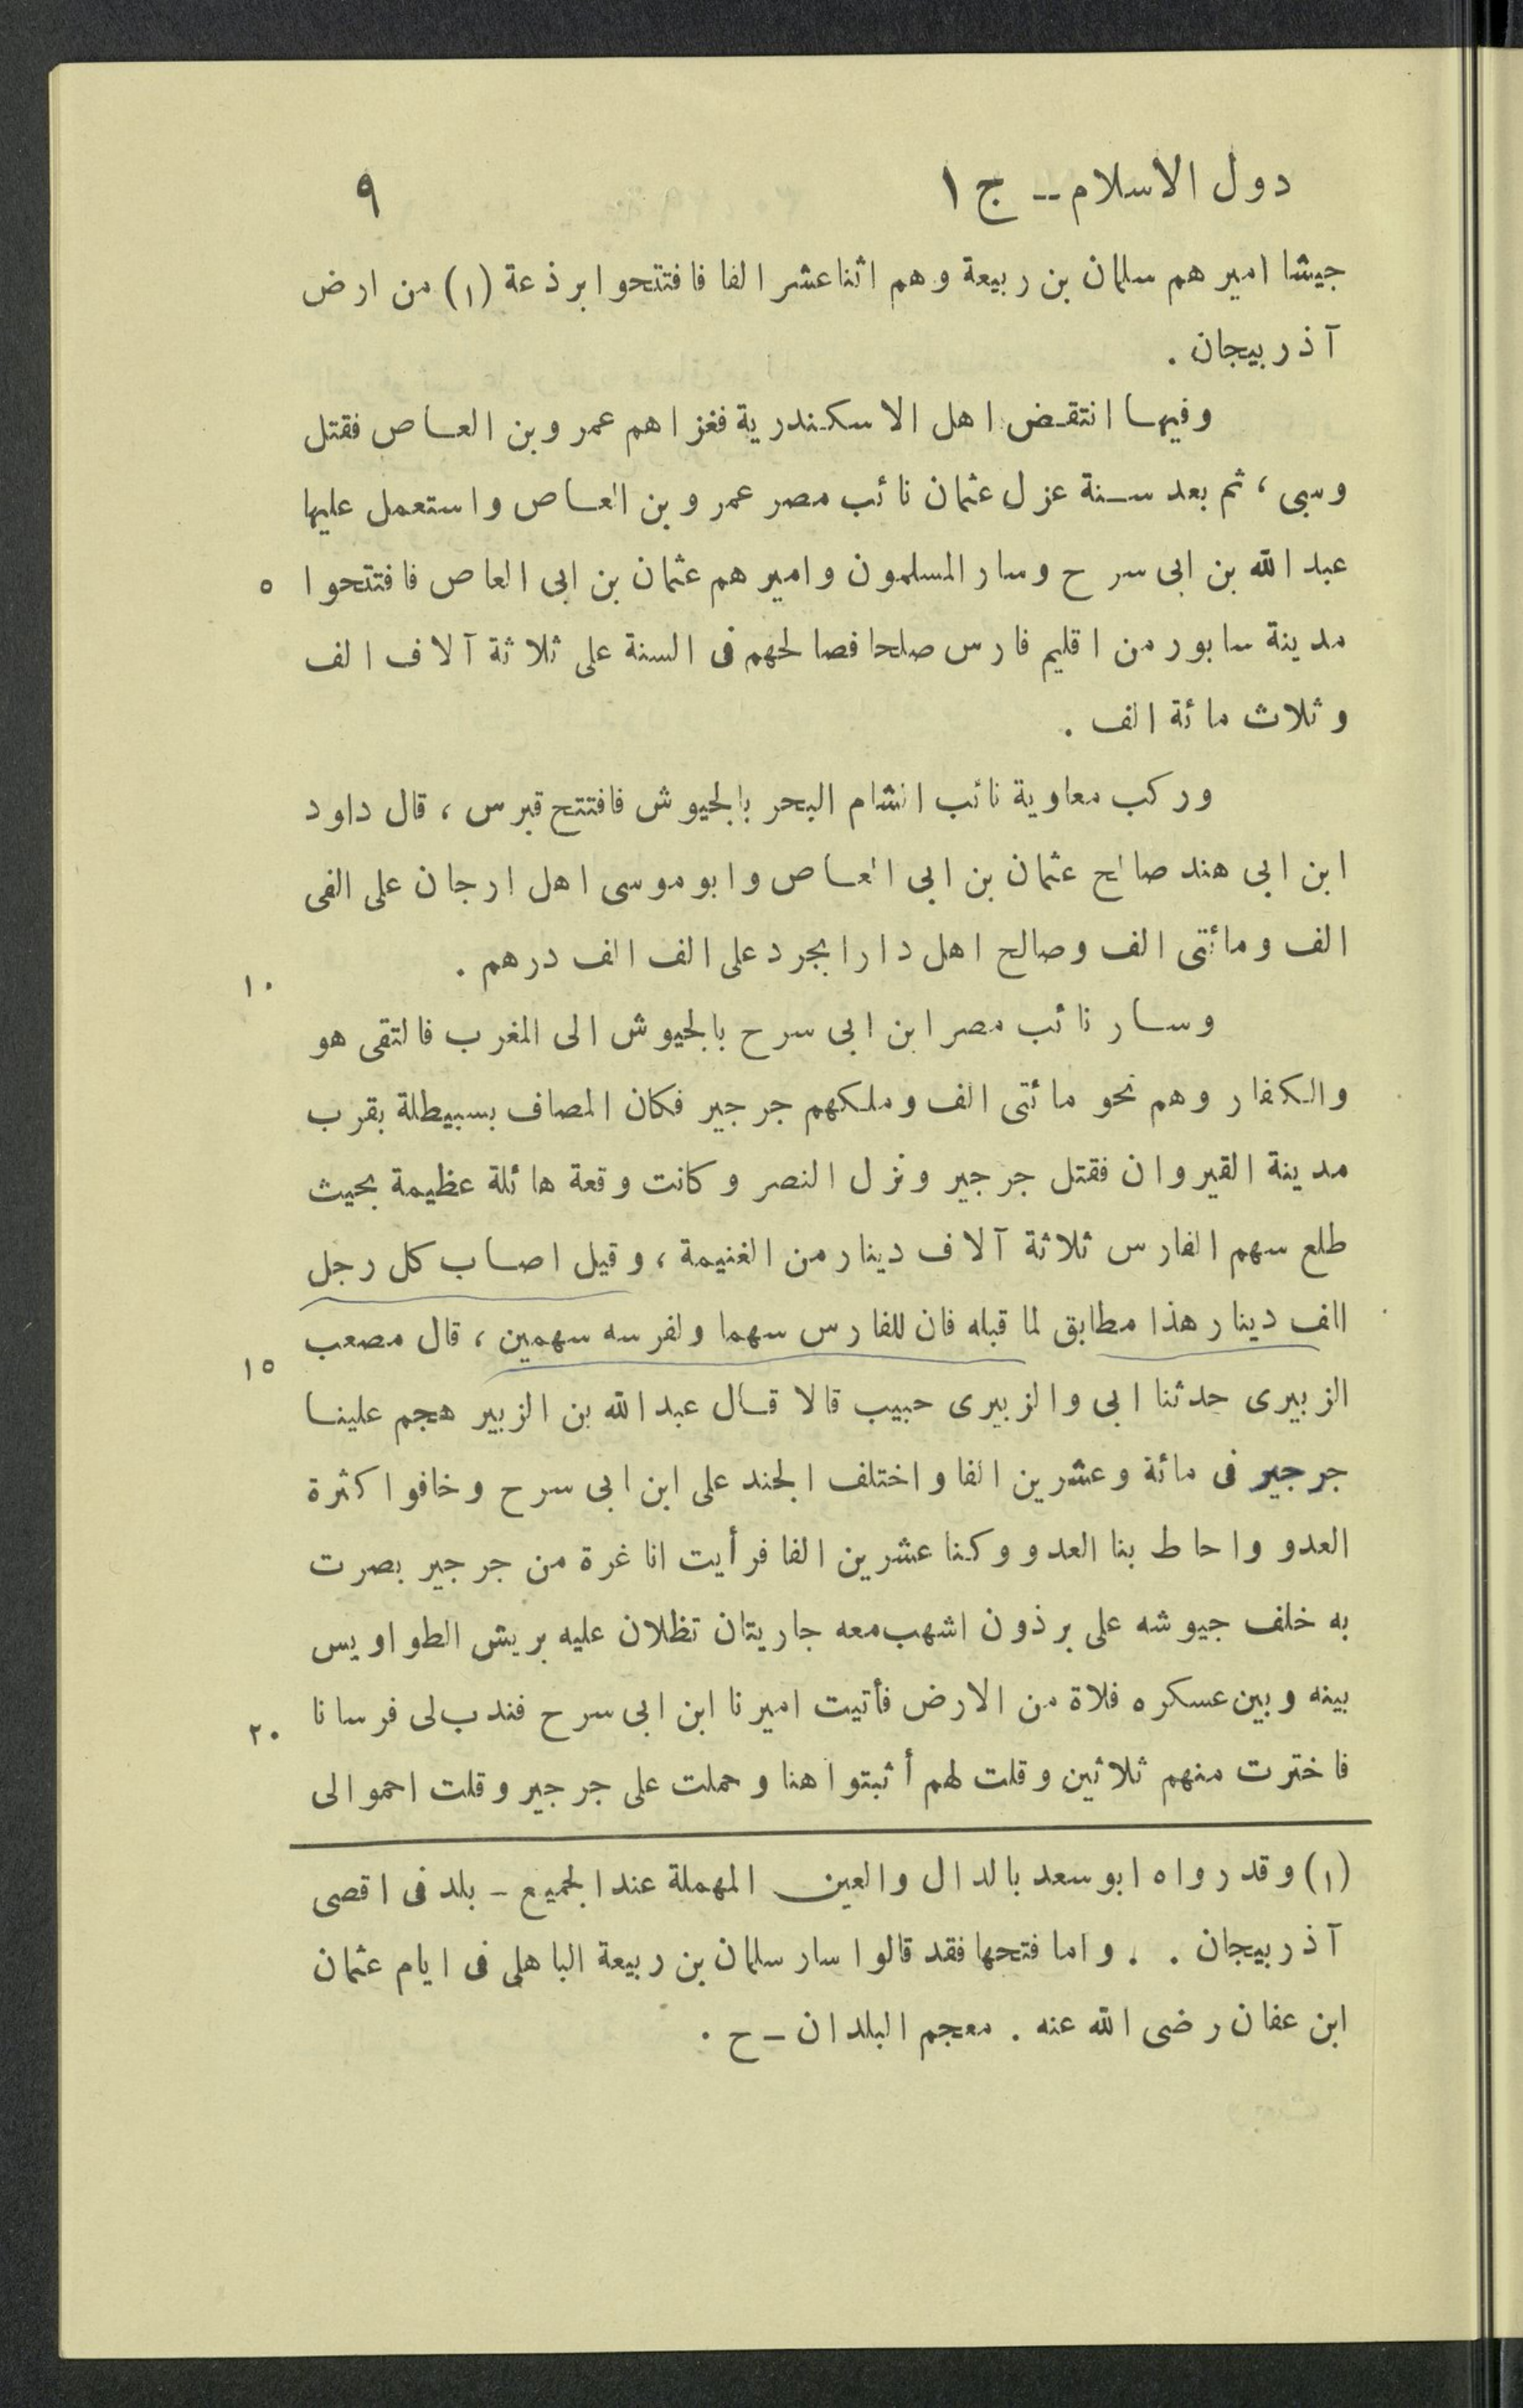 دول الاسلام -- ج ١ ٩
جيشا امير هم سلمان بن ربيعة وهم اثنا عشر الفا فافتتحوا برذعة (١) من ارض
آذربيجان .
وفيها انتقض اهل الاسكندرية فغزاهم عمرو بن العاص فقتل
وسبى ، ثم بعد سنة عزل عثمان نائب مصر عمرو بن العاص واستعمل عليها
عبد الله بن ابى سرح وسار المسلمون واميرهم عثمان بن ابى العاص فافتتحوا ٥
مدينة سابور من اقليم فارس صلحا فصالحهم فى السنة على ثلاثة آلاف الف
وثلاث مائة الف .
وركب معاوية نائب الشام البحر بالجيوش فافتتح قبرس ، قال داود
ابن ابى هند صالح عثمان بن ابى العاص وابو موسى اهل ارجان على الفى
الف ومائتى الف وصالح اهل دارابجرد على الف الف درهم . ١٠
وسار نائب مصر ابن ابى سرح بالجيوش الى المغرب فالتقى هو
والكفار وهم نحو مائتى الف وملكهم جرجير فكان المصاف بسبيطلة بقرب
مدينة القيروان فقتل جرجير ونزل النصر وكانت وقعة هائلة عظيمة بحيث
طلع سهم الفارس ثلاثة آلاف دينار من الغنيمة ، وقيل اصاب كل رجل
الف دينار هذا مطابق لما قبله فان للفارس سهما ولفرسه سهمين ، قال مصعب ١٥
الزبيرى حدثنا ابى والزبيرى حبيب قالا قال عبد الله بن الزبير هجم علينا
جرجير فى مائة وعشرين الفا واختلف الجند على ابن ابى سرح وخافوا كثرة
العدو واحاط بنا العدو وكنا عشرين الفا فرأيت انا غرة من جرجير بصرت
به خلف جيوشه على برذون اشهب معه جاريتان تظلان عليه بريش الطواويس
بينه وبين عسكره فلاة من الارض فأتيت اميرنا ابن ابى سرح فندب لى فرسانا ٢٠
فاخترت منهم ثلاثين وقلت لهم أثبتوا هنا وحملت على جرجير وقلت احموا لى
(١) وقد رواه ابو سعد بالدال والعين المهملة عند الجميع - بلد فى اقصى
آذربيجان . . واما فتحها فقد قالوا سار سلمان بن ربيعة الباهلى فى ايام عثمان
ابن عفان رضى الله عنه . معجم البلدان - ح .